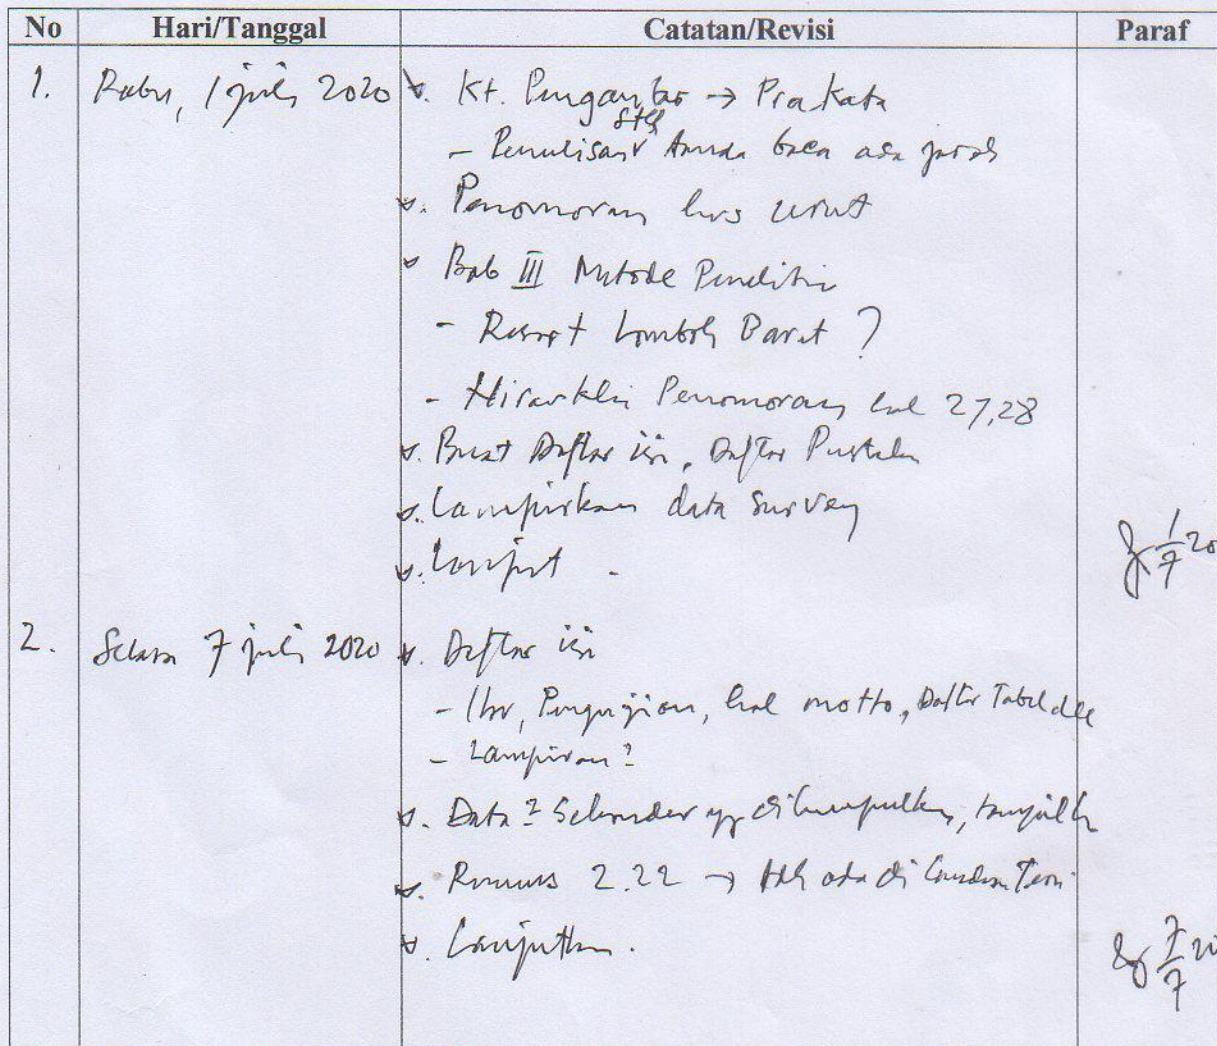 No Hari/Tanggal Catatan/Revisi Paraf
1. Rabu, 1 juli 2020 Kt. Pengantar → Prakata
- Penulisan stlh Anda baca ada
Penomoran hrs urut
Bab III Metode Penelitian
- Lombok Barat ?
- Hirarkhi Penomoran hal 27,28
Buat Daftar isi, Daftar Pustaka
Lampirkan data survey
Lanjut
1/7 20
2. Selasa 7 juli 2020 Daftar isi
- Pengujian, hal motto, Daftar Tabel dll
- Lampiran?
Data2 Sekunder yg dikumpulkan, tampilkn
Rumus 2.22 → ada di Landasan Teori
Lanjutkan.
7/7 20